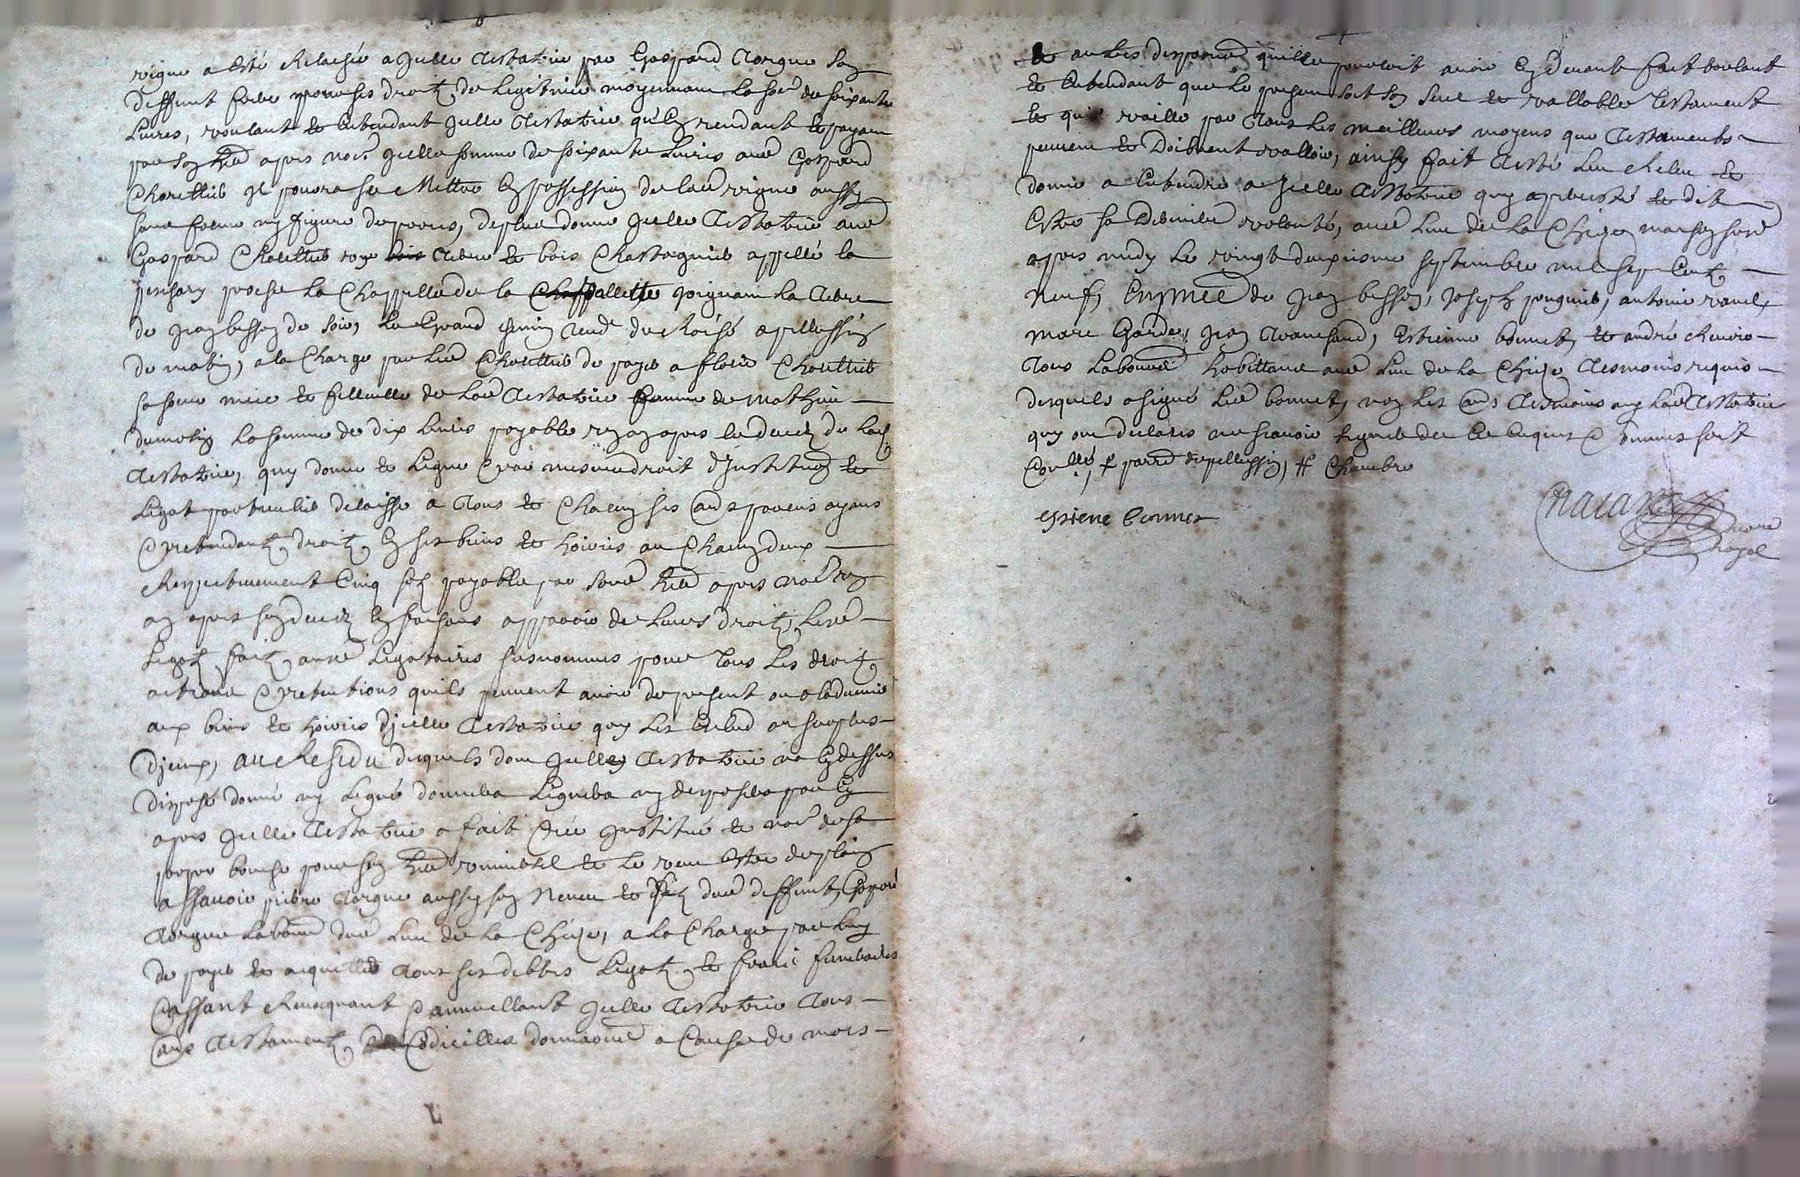 vigne a esté relachée a jcelle testatrice par Gaspard Torgue son
deffunt frere pour ses droitz de legitime moyennant la som̃e de soixante
livres, voulant et entendant jcelle testatrice qu'en rendant et payant
par son her apres nom̃é jcelle somme de soixante livres aud Gaspard
Chouttier jl pourra se mettre en possession de lad vigne aussy
sans forme ny figure de proces, de plus donne jcelle testatrice aud
Gaspard Chouttier une terre et bois chastagnier appellé la
proche la Chappelle de la Challette joignant la terre
de jean besson de soir, le grand chemin tend de a pellussin
de matin, a la charge par led Chouttier de payer a Chouttier
sa soeur niece et fillieulle de lad testatrice femme de Mathieu
dumolin la somme de dix livres payable ung an apres le deces de lad
testatrice, quy donne et legue par mesme droit d'jnstitution et
legat particulier delaisse a tous et chacung ses autres parens ayans
et pretendantz droitz en ses biens et hoirie au chacung deux
respectivement cinq solz payable par sond her apres nom̃é ung
an apres son deces en faisant apparoir de leurs droitz, lesd
legatz faitz ausd legataires susnommés pour tous les droitz
actions et pretentions quils peuvent avoir de present ou a l'advenir
aux biens et hoirie d'jcelle testatrice quy les exclud au surplus
d'jceux, au residu desquels dont jcelle testatrice na cy dessus
disposé donné ny legué donnera leguera ny disposera par cy
apres jcelle testatrice a fait créé jnstitué et nom̃é de sa
propre bouche pour son her universel et le veut estre de plein
a sçavoir pierre Torgue aussy son neveu et filz dud deffunt Gaspard
Torgue laboureur dud lieu de la Chize, a la charge par luy
de payer et acquitter tous ses debtes legatz et frais funeraires
cassant revoquant et annullant jcelle testatrice tous
autres testamentz codicilles donnaõns a cause de mort
et autres disposiõns quelle pourroit avoir cy devant fait voulant
et entendant que le present soit son seul et vallable testament
et qu'il vaille par tous les meilleurs moyens que testaments
peuvent et doibvent valloir, ainsy fait testé leu releu et
donné a entendre a jcelle testatrice quy a persisté et dit
estre sa derniere volonté, aud lieu de la Chize maison sond
apres midy le vingt deuxiesme septembre mil sept centz
neuf, en presence de jean besson, joseph jonquier, antoine
marc Gardes, jean Tranchand, estienne bonnet, et andré
tous laboureurs habittans aud lieu de la Chize tesmoins requis
desquels a signé led bonnet, non les autres tesmoins ny lad testatrice
quy ont declarés ne sçavoir signer de ce enquis et sommés soit
Coullé
estiene bonnet
royal